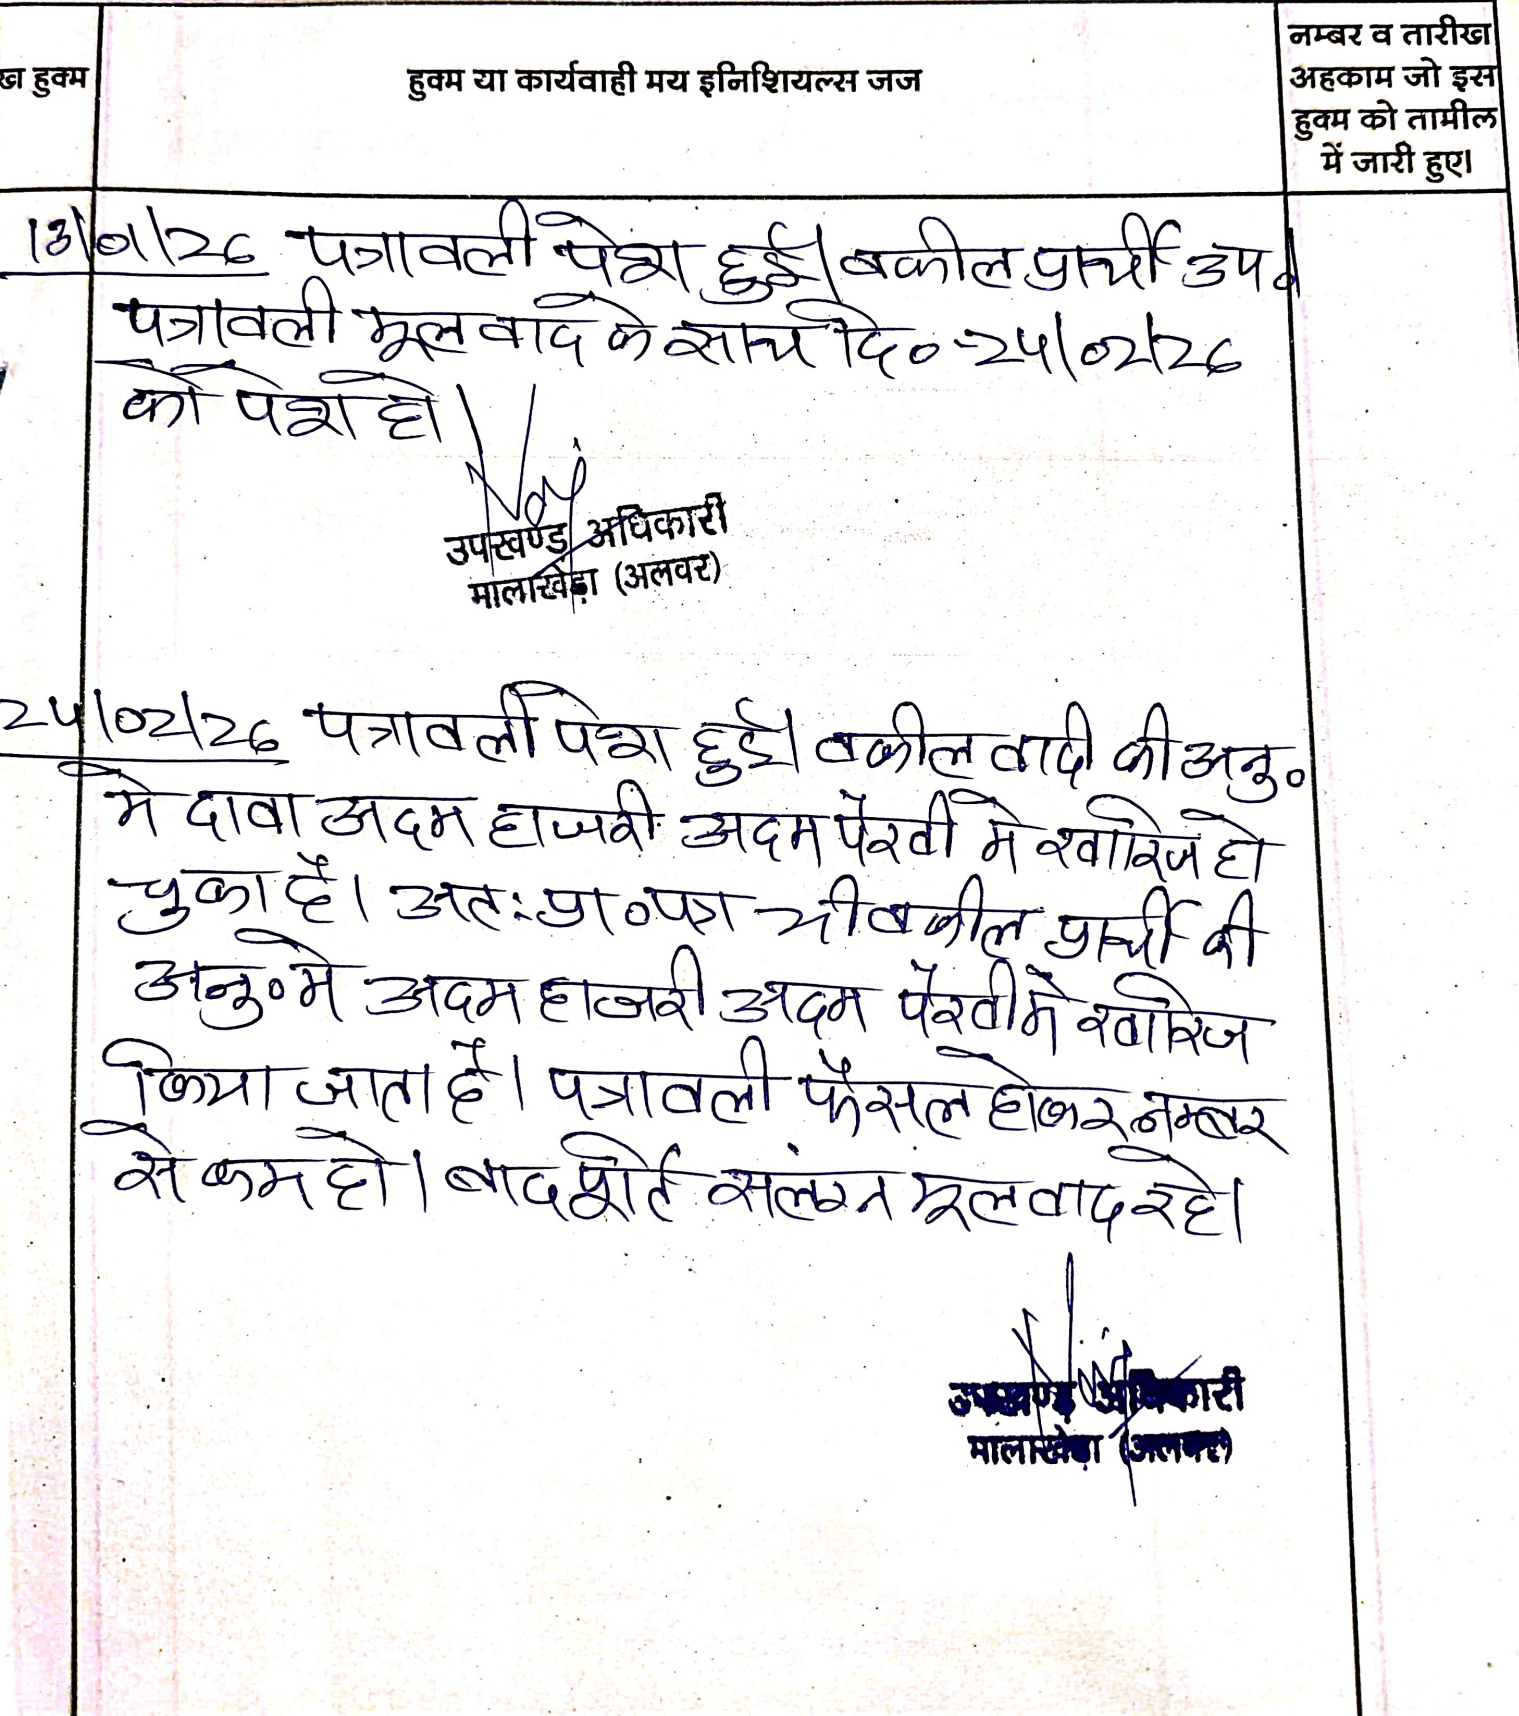 ख हुक्म
हुक्म या कार्यवाही मय इनिशियल्स जज
नम्बर व तारीख
अहकाम जो इस
हुक्म को तामील
में जारी हुए।
13/01/26 पत्रावली पेश हुई। वकील प्रार्थी उप०
पत्रावली मूल वाद के साथ दि० 24/02/26
को पेश हो।
उपखण्ड अधिकारी
मालाखेड़ा (अलवर)
24/02/26 पत्रावली पेश हुई। वकील वादी की अनु०
मे दावा अदम हाजरी अदम पैरवी मे खारिज हो
चुका है। अतः प्रा०पत्र भी वकील प्रार्थी की
अनु० मे अदम हाजरी अदम पैरवी मे खारिज
किया जाता है। पत्रावली फैसल होकर नम्बर
से कम हो। बाद पूर्ति संलग्न मूल वाद रहे।
उपखण्ड अधिकारी
मालाखेड़ा (अलवर)